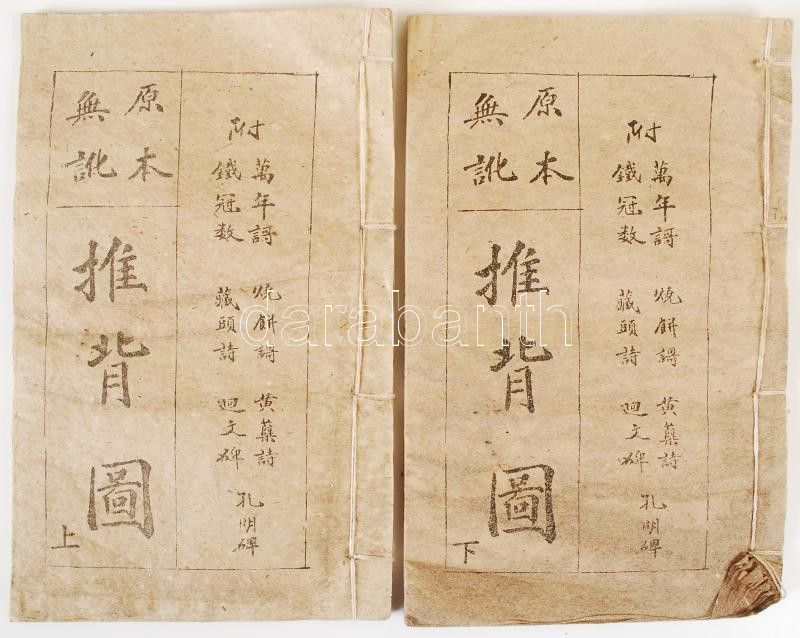 附
萬年謌 燒餅謌 黄蘗詩
鐵冠数 藏頭詩 迴文碑
孔明碑
原本
無訛
推背圖
上
附
萬年謌 燒餅謌 黄蘗詩
鐵冠数 藏頭詩 迴文碑
孔明碑
原本
無訛
推背圖
下
darabanth